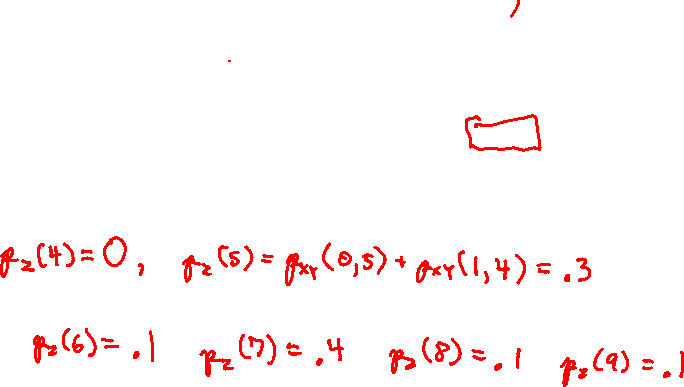 p_z(4)=0, p_z(5)=p_XY(0,5)+p_XY(1,4)=.3
p_z(6)=.1 p_z(7)=.4 p_z(8)=.1 p_z(9)=.1